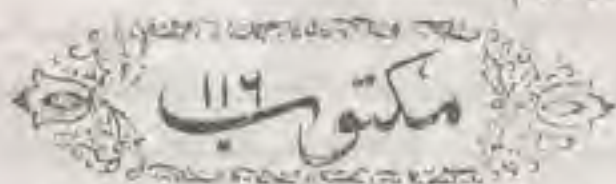 مکتوب ۱۱۶